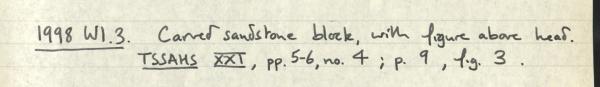 1998 WI.3. Carved sandstone block, with figure above head.
TSSAHS XXI, pp. 5-6, no. 4 ; p. 9, fig. 3.